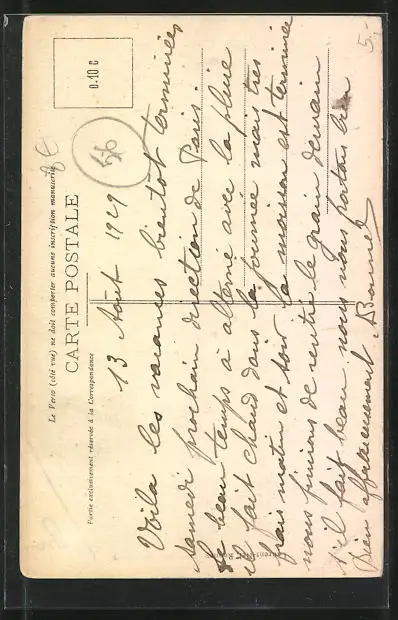 Le Verso (côté vue) ne doit comporter aucune inscription manuscrite
CARTE POSTALE
Partie exclusivement réservée à la Correspondance
0.10 c
5.-
13 Août 1929
Voilà les vacances bientôt terminées
samedi prochain direction de Paris.
le beau temps à alterné avec la pluie
il fait chaud dans la journée mais très
frais matin et soir la moisson est terminée
nous finirons de rentré le grain demain
s'il fait beau. nous nous portons bien
Bien affectueusement Bonnet